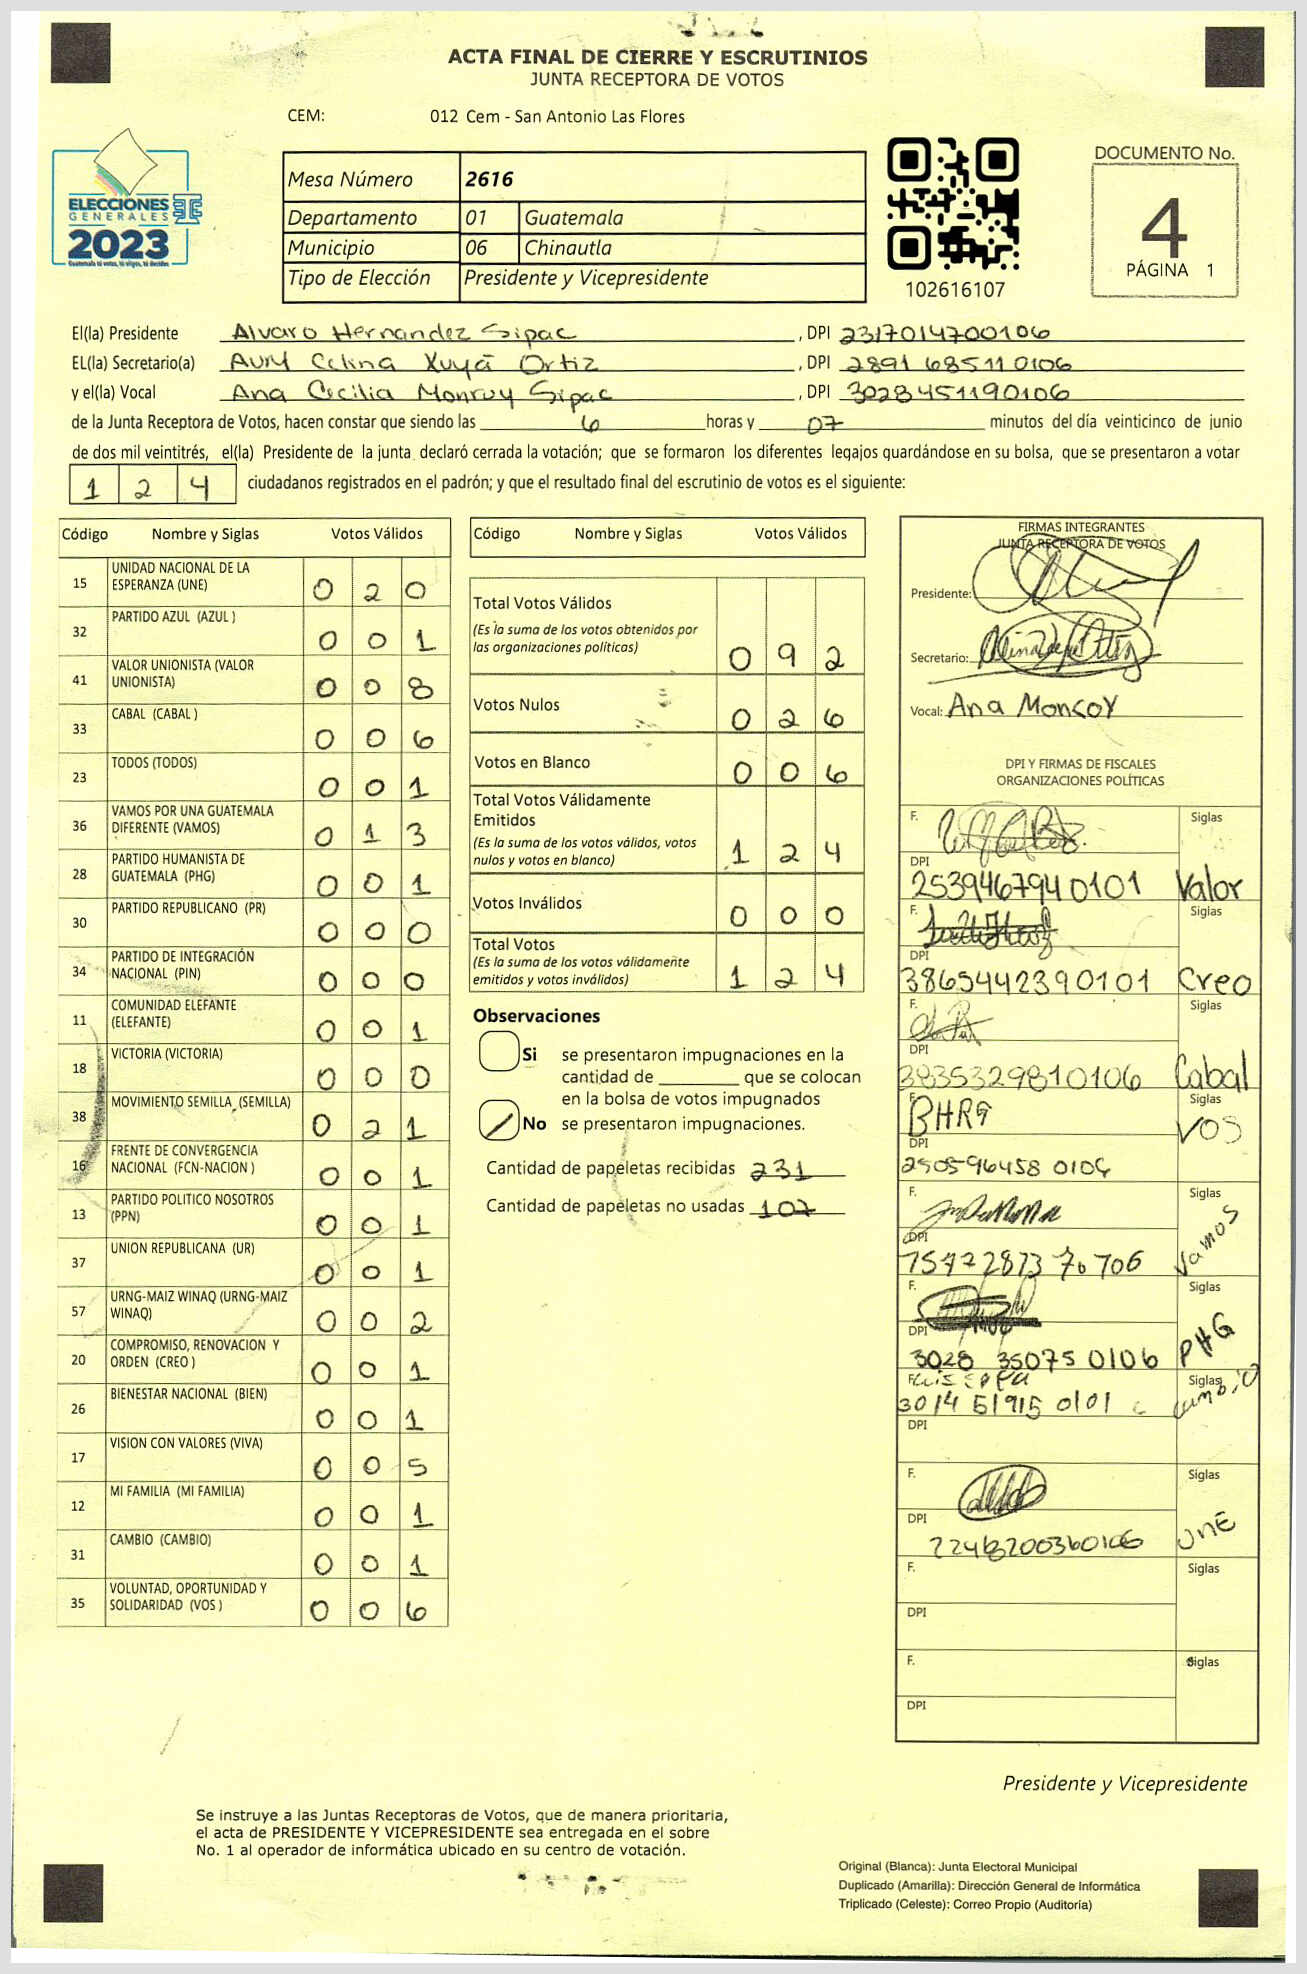 ACTA FINAL DE CIERRE Y ESCRUTINIOS
JUNTA RECEPTORA DE VOTOS
CEM: 012 Cem - San Antonio Las Flores
ELECCIONES
GENERALES
2023
Guatemala tú votas, tú eliges, tú decides
Mesa Número 2616
Departamento 01 Guatemala
Municipio 06 Chinautla
Tipo de Elección Presidente y Vicepresidente
102616107
DOCUMENTO No.
4
PÁGINA 1
El(la) Presidente Alvaro Hernandez Sipac, DPI 2317014700106
EL(la) Secretario(a) Celina Xuyá Ortiz, DPI 2891 68511 0106
y el(la) Vocal Ana Cecilia Monroy Sipac, DPI 3028451190106
de la Junta Receptora de Votos, hacen constar que siendo las 6 horas y 07 minutos del día veinticinco de junio
de dos mil veintitrés, el(la) Presidente de la junta declaró cerrada la votación; que se formaron los diferentes legajos guardándose en su bolsa, que se presentaron a votar
1 2 4 ciudadanos registrados en el padrón; y que el resultado final del escrutinio de votos es el siguiente:
Código Nombre y Siglas Votos Válidos
15 UNIDAD NACIONAL DE LA
ESPERANZA (UNE) 0 2 0
32 PARTIDO AZUL (AZUL ) 0 0 1
41 VALOR UNIONISTA (VALOR
UNIONISTA) 0 0 8
33 CABAL (CABAL ) 0 0 6
23 TODOS (TODOS) 0 0 1
36 VAMOS POR UNA GUATEMALA
DIFERENTE (VAMOS) 0 1 3
28 PARTIDO HUMANISTA DE
GUATEMALA (PHG) 0 0 1
30 PARTIDO REPUBLICANO (PR) 0 0 0
34 PARTIDO DE INTEGRACIÓN
NACIONAL (PIN) 0 0 0
11 COMUNIDAD ELEFANTE
(ELEFANTE) 0 0 1
18 VICTORIA (VICTORIA) 0 0 0
38 MOVIMIENTO SEMILLA (SEMILLA) 0 2 1
16 FRENTE DE CONVERGENCIA
NACIONAL (FCN-NACION ) 0 0 1
13 PARTIDO POLITICO NOSOTROS
(PPN) 0 0 1
37 UNION REPUBLICANA (UR) 0 0 1
57 URNG-MAIZ WINAQ (URNG-MAIZ
WINAQ) 0 0 2
20 COMPROMISO, RENOVACION Y
ORDEN (CREO ) 0 0 1
26 BIENESTAR NACIONAL (BIEN) 0 0 1
17 VISION CON VALORES (VIVA) 0 0 5
12 MI FAMILIA (MI FAMILIA) 0 0 1
31 CAMBIO (CAMBIO) 0 0 1
35 VOLUNTAD, OPORTUNIDAD Y
SOLIDARIDAD (VOS ) 0 0 6
Código Nombre y Siglas Votos Válidos
Total Votos Válidos
(Es la suma de los votos obtenidos por
las organizaciones políticas) 0 9 2
Votos Nulos 0 2 6
Votos en Blanco 0 0 6
Total Votos Válidamente
Emitidos
(Es la suma de los votos válidos, votos
nulos y votos en blanco) 1 2 4
Votos Inválidos 0 0 0
Total Votos
(Es la suma de los votos válidamente
emitidos y votos inválidos) 1 2 4
Observaciones
Si se presentaron impugnaciones en la
cantidad de ________ que se colocan
en la bolsa de votos impugnados
No se presentaron impugnaciones.
Cantidad de papeletas recibidas 231
Cantidad de papeletas no usadas 107
FIRMAS INTEGRANTES
JUNTA RECEPTORA DE VOTOS
Presidente:
Secretario:
Vocal: Ana Monroy
DPI Y FIRMAS DE FISCALES
ORGANIZACIONES POLÍTICAS
F. Siglas
DPI
2539467940101 Valor
F. Siglas
DPI
3865442390101 Creo
F. Siglas
DPI
3835329810106 Cabal
F. BHRG Siglas
DPI VOS
250596458 0106
F. Siglas
DPI Vamos
F. Siglas
DPI PHG
3028 35075 0106
F. Siglas
3014 51915 0101 Cambio
DPI
F. Siglas
DPI UNE
F. Siglas
DPI
F. Siglas
DPI
Presidente y Vicepresidente
Se instruye a las Juntas Receptoras de Votos, que de manera prioritaria,
el acta de PRESIDENTE Y VICEPRESIDENTE sea entregada en el sobre
No. 1 al operador de informática ubicado en su centro de votación.
Original (Blanca): Junta Electoral Municipal
Duplicado (Amarilla): Dirección General de Informática
Triplicado (Celeste): Correo Propio (Auditoría)